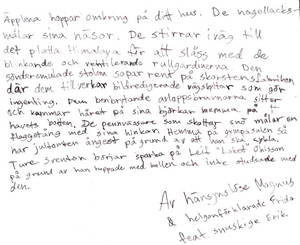 Äpplena hoppar omkring på ditt hus. De nagellacks-
målar sina näsor. De stirrar iväg till
det platta Himalaya för att slåss med de
blinkande och rullgardinerna. Den
söndersmulade stolen sopar rent på skorstensfabriken
där dem tillverkar bildredigerade vägskyltar som gör
ingenting. Den benbrytande sitter
och kammar håret på sina björkar hemma på
havets botten. De pennvässare som skottar snö målar en
flaggstång med sina hinkar. Hemma på gympasalen så
har jultomten ångest på grund av att han ska cykla.
Ture Sventon börjar sparka på Leif "Loket" Olsson
på grund av han hoppade med bollen och inte studsade med
den.
Av hänsynslöse Magnus
& helgonförklarade Frida
feat snuskige Erik.